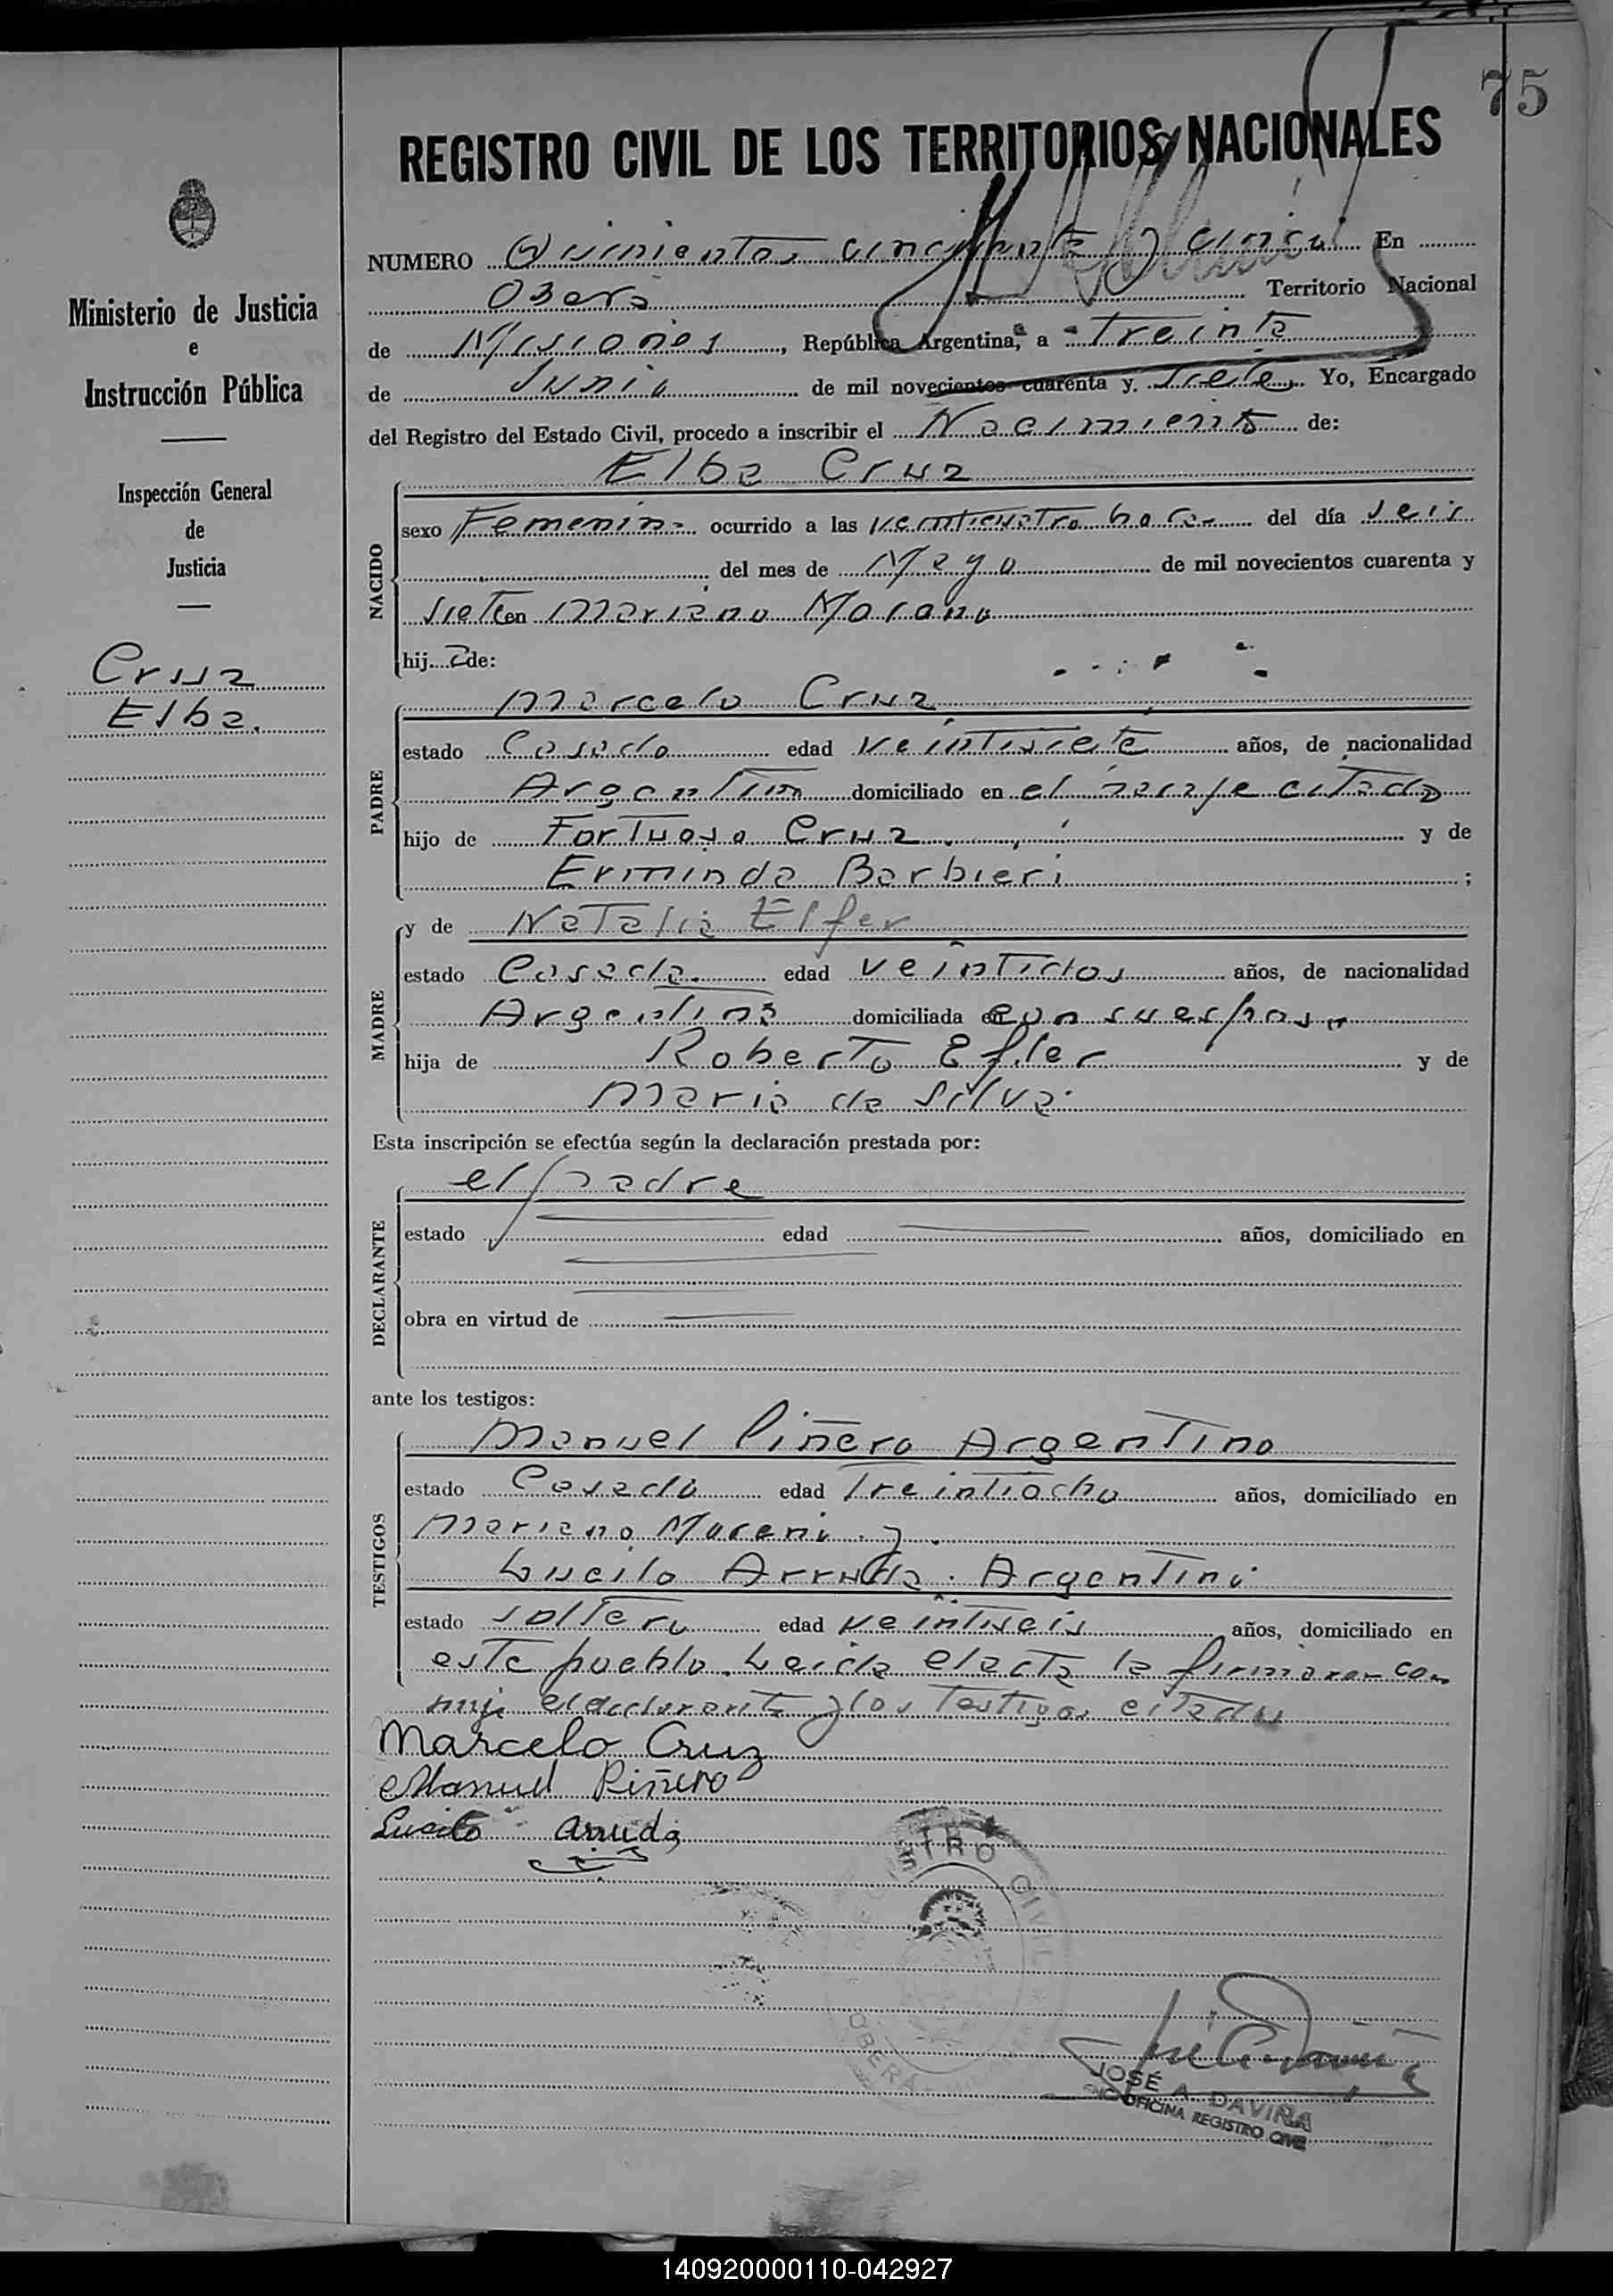 75
REGISTRO CIVIL DE LOS TERRITORIOS NACIONALES
Ministerio de Justicia
e
Instrucción Pública
Inspección General
de
Justicia
Cruz
Elba.
NUMERO Quinientos cincuenta y cinco En
Oberá Territorio Nacional
de Misiones, República Argentina, a treinta
de Junio de mil novecientos cuarenta y siete, Yo, Encargado
del Registro del Estado Civil, procedo a inscribir el Nacimiento de:
Elba Cruz
NACIDO
sexo Femenino ocurrido a las veinticuatro horas del día seis
del mes de Mayo de mil novecientos cuarenta y
siete en Mariano Moreno
hija de:
Marcelo Cruz
PADRE
estado Casado edad veintisiete años, de nacionalidad
Argentino domiciliado en el paraje citado
hijo de Fortuoso Cruz y de
Erminda Barbieri ;
MADRE
y de Natalia Elfer
estado Casada. edad veintidos años, de nacionalidad
Argentina domiciliada con su esposo
hija de Roberto Efler y de
Maria da Silva.
Esta inscripción se efectúa según la declaración prestada por:
el padre
DECLARANTE
estado edad años, domiciliado en
obra en virtud de
ante los testigos:
TESTIGOS
Manuel Piñero Argentino
estado Casado edad treintiocho años, domiciliado en
Mariano Moreno y.
Lucilo Arruda. Argentino
estado soltero edad veintiseis años, domiciliado en
este pueblo. Leida el acta la firmaron con
migo el declarante y los testigos citados
Marcelo Cruz
Manuel Piñero
Lucilo Arruda
REGISTRO CIVIL
OBERA
JOSÉ A. DAVIÑA
ENC. OFICINA REGISTRO CIVIL
140920000110-042927